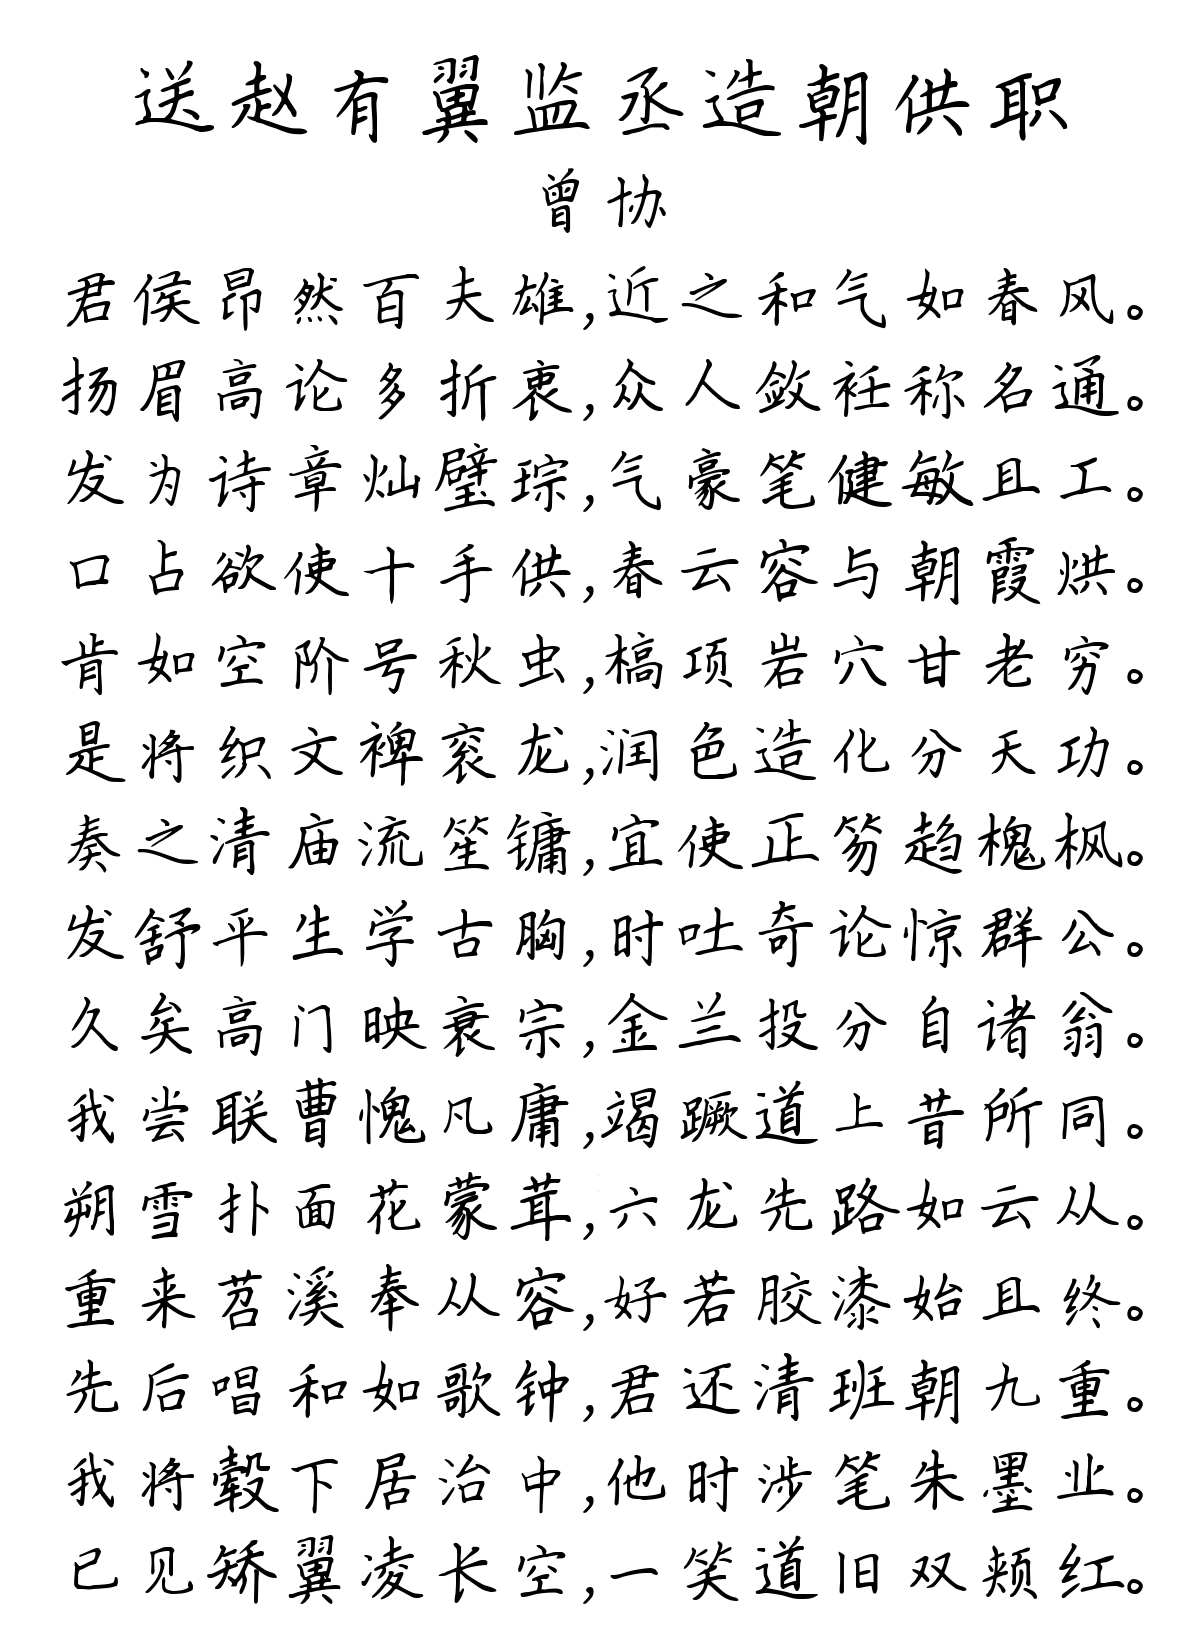 送赵有翼监丞造朝供职
曾协
君侯昂然百夫雄,近之和气如春风。
扬眉高论多折衷,众人敛衽称名通。
发为诗章灿璧琮,气豪笔健敏且工。
口占欲使十手供,春云容与朝霞烘。
肯如空阶号秋虫,槁项岩穴甘老穷。
是将织文裨衮龙,润色造化分天功。
奏之清庙流笙镛,宜使正笏趋槐枫。
发舒平生学古胸,时吐奇论惊群公。
久矣高门映衰宗,金兰投分自诸翁。
我尝联曹愧凡庸,竭蹶道上昔所同。
朔雪扑面花蒙茸,六龙先路如云从。
重来苕溪奉从容,好若胶漆始且终。
先后唱和如歌钟,君还清班朝九重。
我将毂下居治中,他时涉笔朱墨业。
已见矫翼凌长空,一笑道旧双颊红。